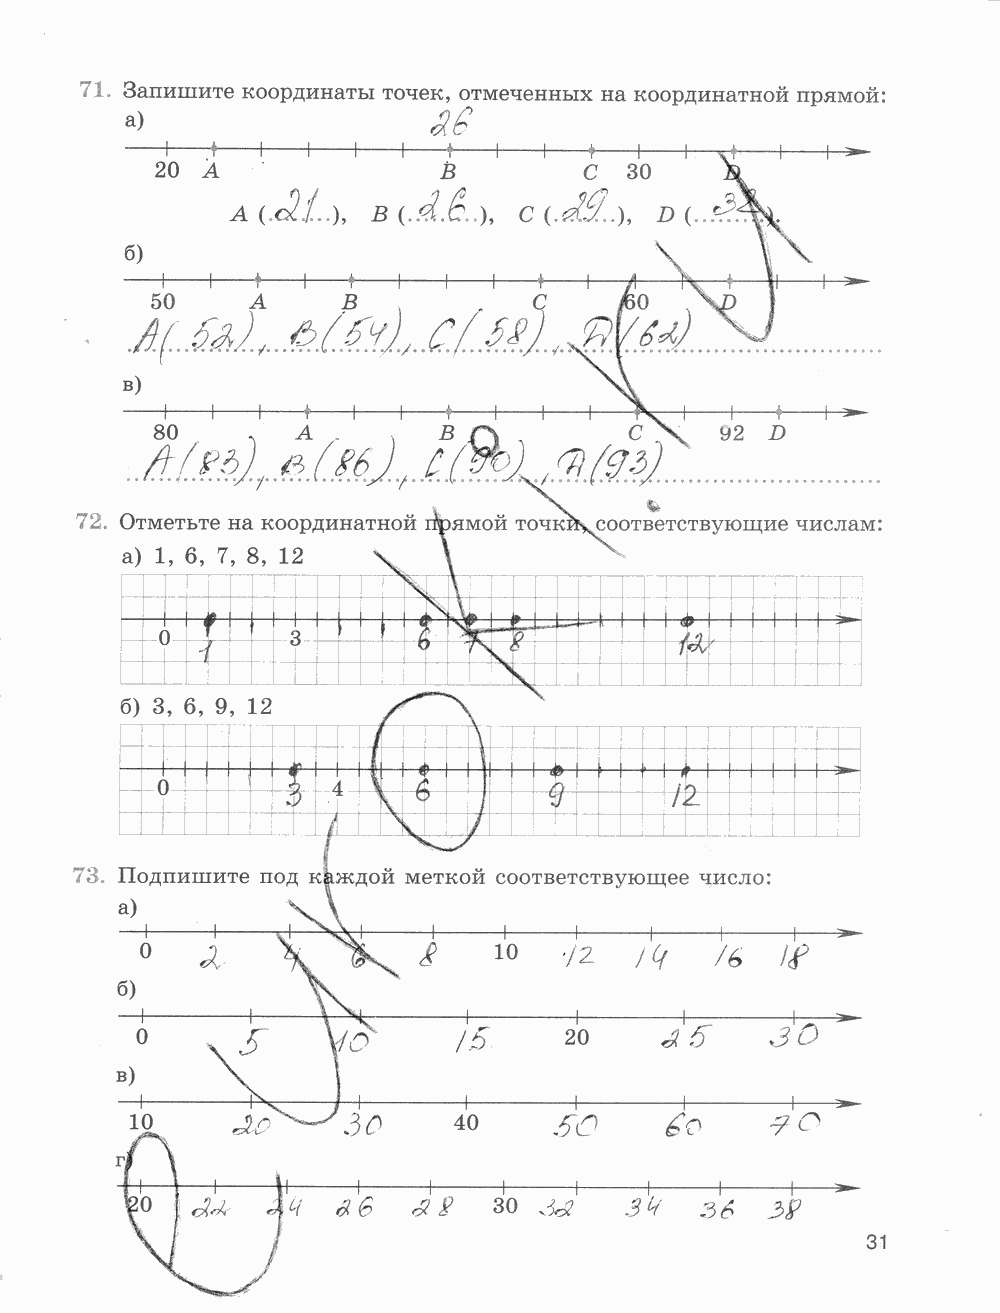 71. Запишите координаты точек, отмеченных на координатной прямой:
а)
26
20 A B C 30 D
A (21), B (26), C (29), D (32).
б)
50 A B C 60 D
A(52), B(54), C(58), D(62)
в)
80 A B C 92 D
A(83), B(86), C(90), D(93)
72. Отметьте на координатной прямой точки, соответствующие числам:
а) 1, 6, 7, 8, 12
0 1 3 6 7 8 12
б) 3, 6, 9, 12
0 3 4 6 9 12
73. Подпишите под каждой меткой соответствующее число:
а)
0 2 4 6 8 10 12 14 16 18
б)
0 5 10 15 20 25 30
в)
10 20 30 40 50 60 70
г)
20 22 24 26 28 30 32 34 36 38
31